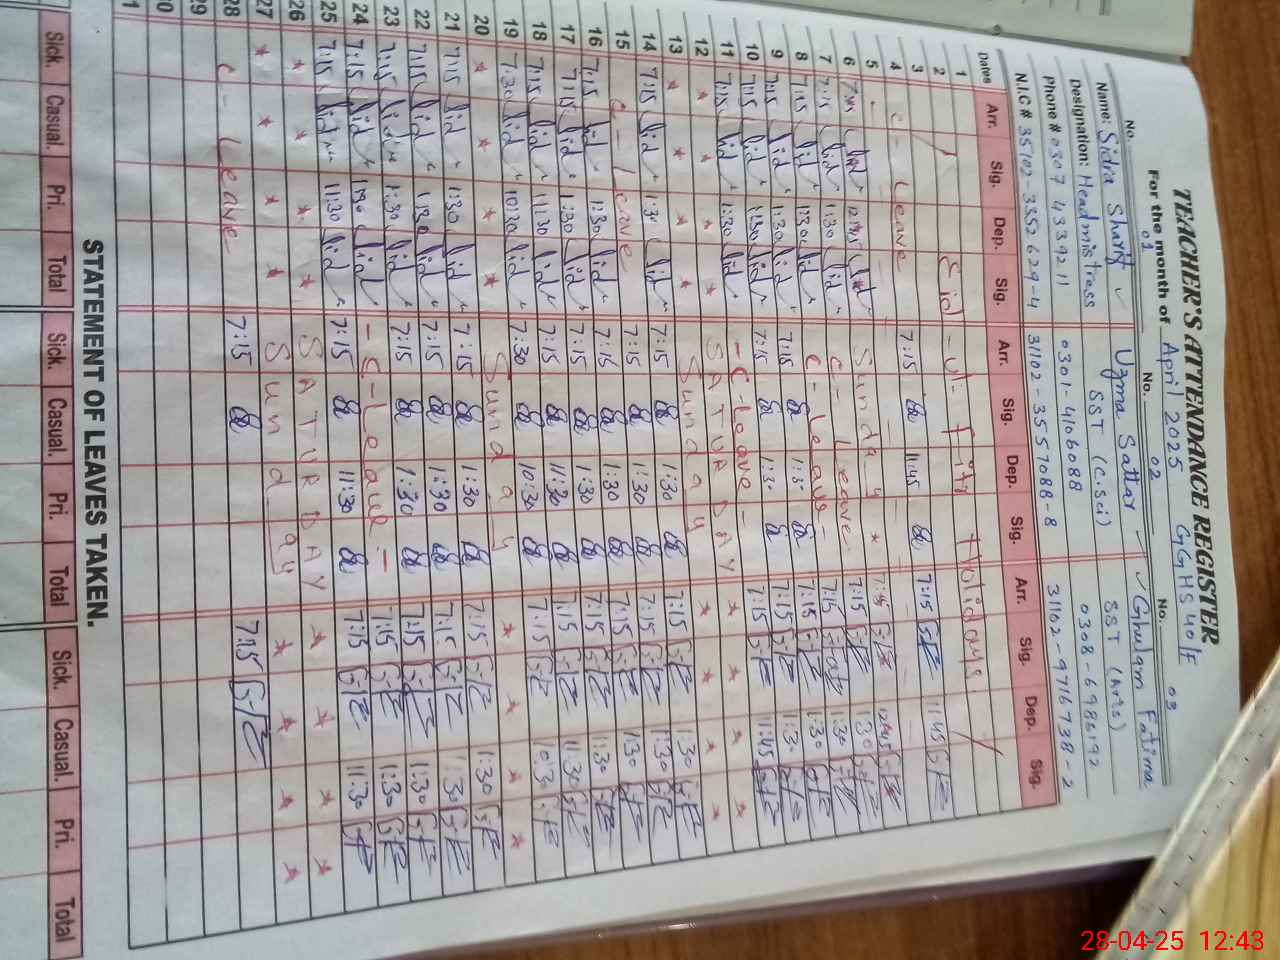 TEACHER'S ATTENDANCE REGISTER
For the month of April 2025 GGHS 40/F
No. 01 No. 02 No. 03
Name: Sidra Sharif Uzma Sattar Ghulam Fatima
Designation: Headmistress SST (C.Sci) SST (Arts)
Phone # 0307 4339211 0301-4106088 0308-6986192
N.I.C # 35102-3352629-4 31102-3557088-8 31102-9716738-2
Dates Arr. Sig. Dep. Sig. Arr. Sig. Dep. Sig. Arr. Sig. Dep. Sig.
1
2 Eid-ul-Fitr Holidays.
3
4 C-Leave 7:15 11:45 7:15 11:45
5
6 7:45 12:45 Sunday * 7:45 12:45
7 7:15 1:30 C-Leave 7:15 1:30
8 7:15 1:30 C-Leave- 7:15 1:30
9 7:15 1:30 7:15 1:30 7:15 1:30
10 7:15 1:30 7:15 1:30 7:15 1:30
11 7:15 1:30 -C-Leave- 7:15 11:45
12 * * * * SATURDAY * * * *
13 * * * * Sunday * * * *
14 7:15 1:30 7:15 1:30 7:15 1:30
15 C-Leave 7:15 1:30 7:15 1:30
16 7:15 1:30 7:15 1:30 7:15 1:30
17 7:15 1:30 7:15 1:30 7:15 1:30
18 7:15 11:30 7:15 11:30 7:15 11:30
19 7:30 10:30 7:30 10:30 7:15 10:30
20 * * * * Sunday * * * *
21 7:15 1:30 7:15 1:30 7:15 1:30
22 7:15 1:30 7:15 1:30 7:15 1:30
23 7:15 1:30 7:15 1:30 7:15 1:30
24 7:15 1:30 -C-Leave- 7:15 1:30
25 7:15 11:30 7:15 11:30 7:15 11:30
26 * * * * SATURDAY * * * *
27 * * * * Sunday * * * *
28 C-Leave 7:15 7:15
29
30
STATEMENT OF LEAVES TAKEN.
Sick. Casual. Pri. Total Sick. Casual. Pri. Total Sick. Casual. Pri. Total
28-04-25 12:43